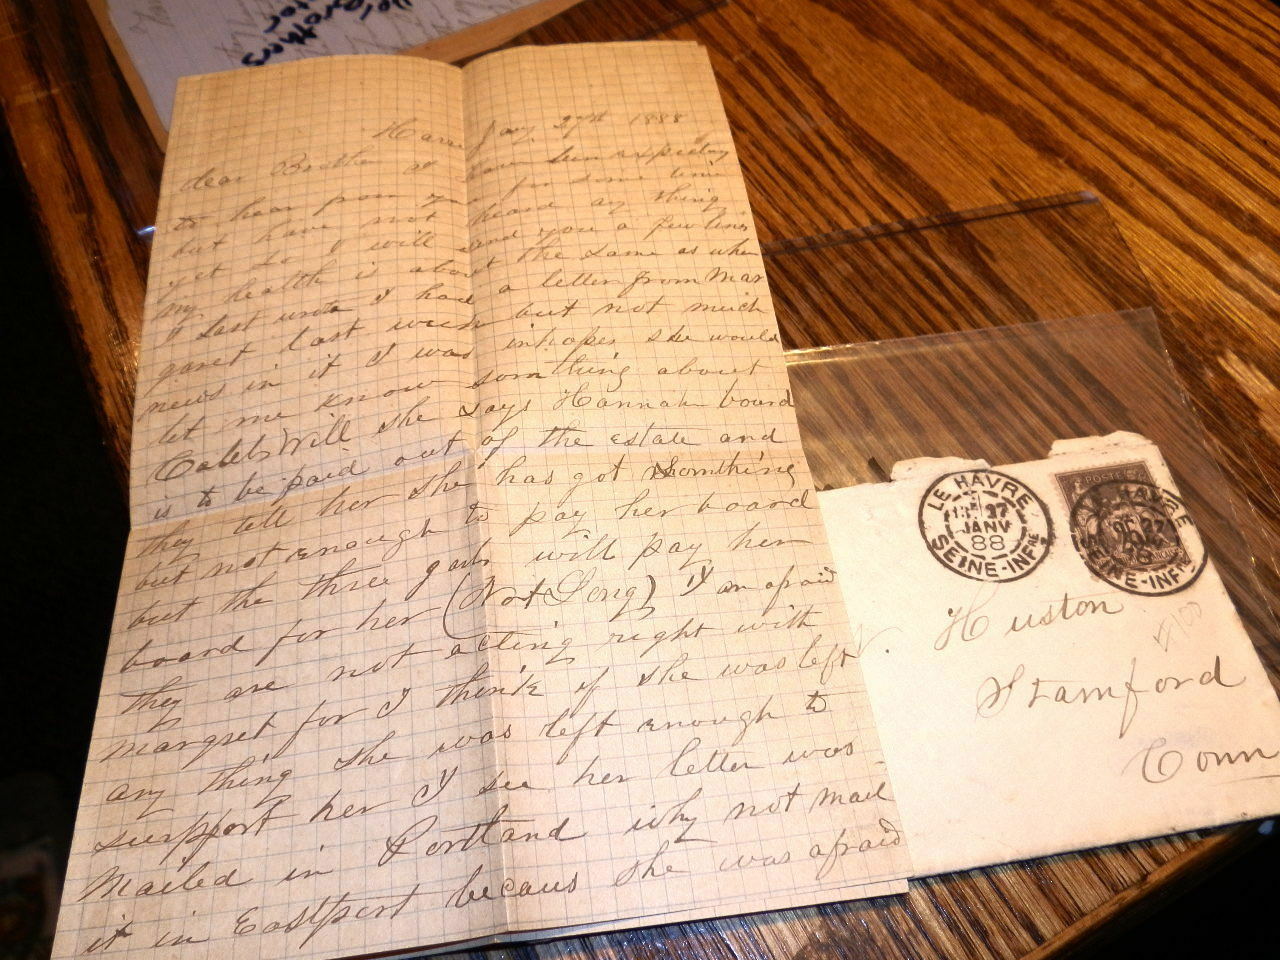 Brothers
Havre Jany 27th 1888
dear Brother I have been expecting
to hear from you for some time
but have not heard any thing
yet so I will send you a few lines
my health is about the same as when
I last wrote I had a letter from Mar
garet last week but not much
news in it I was in hopes she would
let me know somthing about
Calebs Will she says Hannah board
is to be paid out of the estate and
they tell her she has got somthing
but not enough to pay her board
but the three will pay her
board for her (Not Long) I am afraid
they are not acting right with
margret for I think if she was left
any thing she was left enough to
support her I see her letter was
mailed in Portland why not mail
it in Eastport becaus she was afraid
LE HAVRE
27
JANV
88
SEINE-INFRE
POSTES
LE HAVRE
27
SEINE-INFRE
Huston
Stamford
Conn
#100